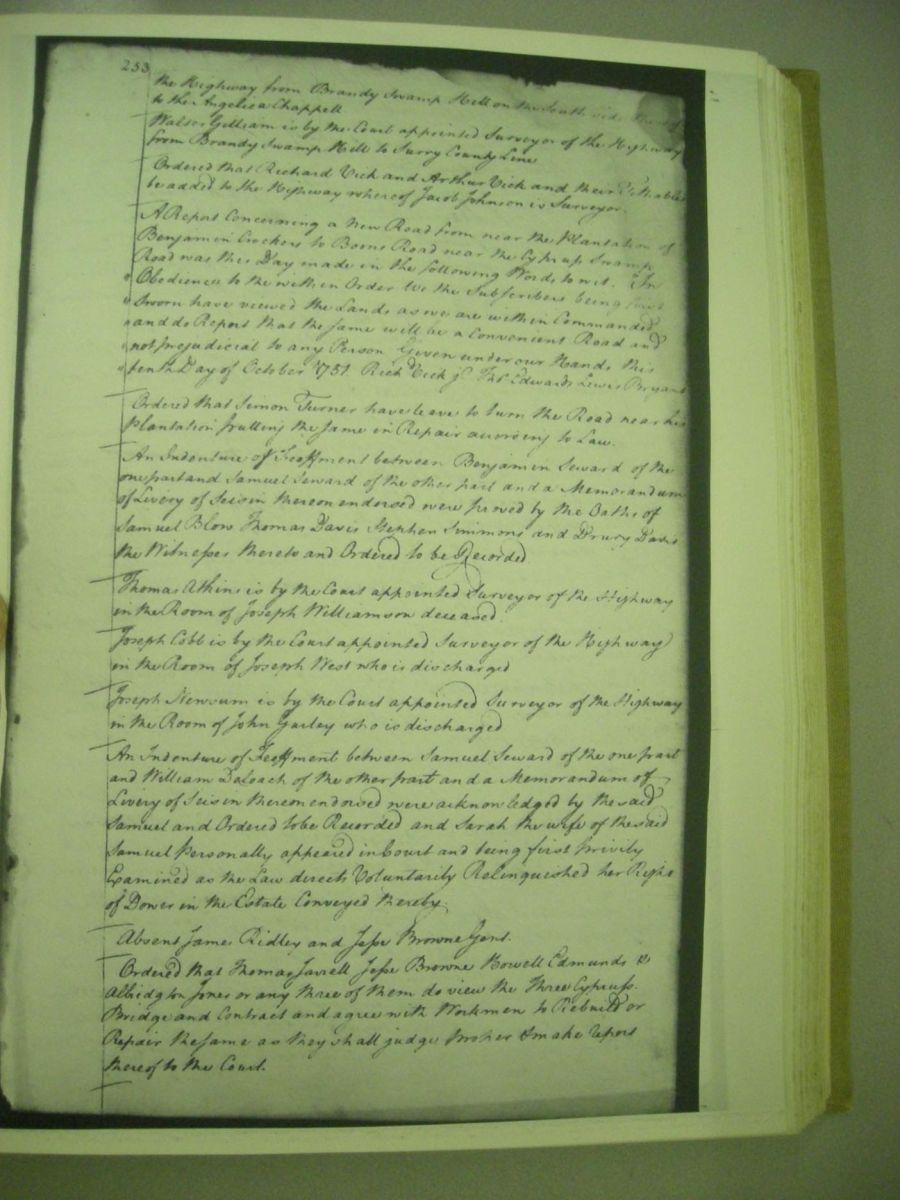 253
the Highway from Brandy Swamp Hill on the South side thereof
to the Angelica Chappell
Walter Gilliam is by the Court appointed Surveyor of the Highway
from Brandy Swamp Hill to Surry County Line
Ordered that Richard Vick and Arthur Vick and their Tithables
be added to the Highway whereof Jacob Johnson is Surveyor.
A Report Concerning a New Road from near the Plantation of
Benjamin Crockers to Boons Road near the Cyprus Swamp
Road was this Day made in the following Words to wit. In
Obedience to the within Order We the Subscribers being first
Sworn have viewed the Lands as we are within Commanded
and do Report that the same will be a Convenient Road and
not prejudicial to any Person Given under our Hands this
tenth Day of October 1751. Richd Vick jr. Thos Edwards Lewis Bryant
Ordered that Simon Turner have leave to turn the Road near his
Plantation putting the same in Repair according to Law.
An Indenture of Feoffment between Benjamin Seward of the
one part and Samuel Seward of the other part and a Memorandum
of Livery of Seisin thereon endorsed were proved by the Oaths of
Samuel Blow Thomas Davis Stephen Simmons and Drury Davis
the Witnesses thereto and Ordered to be Recorded
Thomas Atkins is by the Court appointed Surveyor of the Highway
in the Room of Joseph Williamson deceased.
Joseph Cobb is by the Court appointed Surveyor of the Highway
in the Room of Joseph West who is discharged
Joseph Newsum is by the Court appointed Surveyor of the Highway
in the Room of John Gurley who is discharged
An Indenture of Feoffment between Samuel Seward of the one part
and William DeLoach of the other part and a Memorandum of
Livery of Seisin thereon endorsed were acknowledged by the said
Samuel and Ordered to be Recorded and Sarah the wife of the said
Samuel Personally appeared in Court and being first Privily
Examined as the Law directs Voluntarily Relinquished her Right
of Dower in the Estate Conveyed thereby.
Absent James Ridley and Jesse Browne Gent.
Ordered that Thomas Jarrell Jesse Browne Howell Edmunds &
Albidgton Jones or any three of them do view the Three Cypress
Bridge and Contract and agree with Workmen to Rebuild or
Repair the same as they shall judge Proper & make report
thereof to the Court.